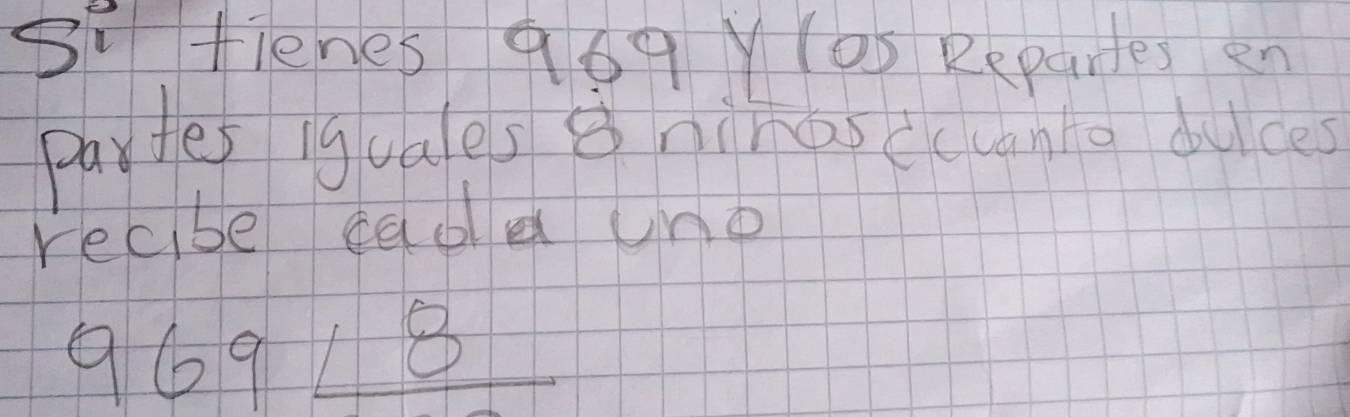 Si tienes 969 y los Repartes en
partes iguales 8 niños ¿cuanto dulces
recibe cada uno
969 8